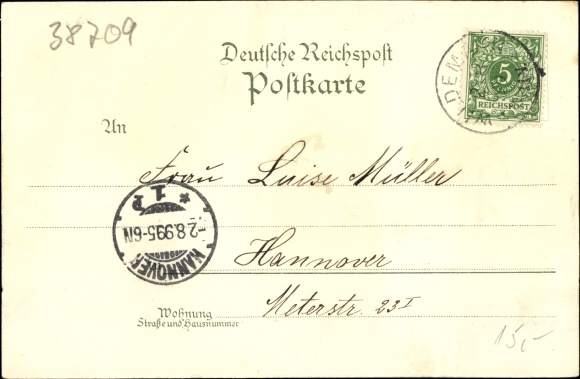 38709
Deutsche Reichspost
Postkarte
5
PFENNIG
REICHSPOST
An
Frau Luise Müller
* 1 P
-2.8.99.5-6N
HANNOVER
Hannover
Meterstr. 23 I
Wohnung
Straße und Hausnummer
15,-